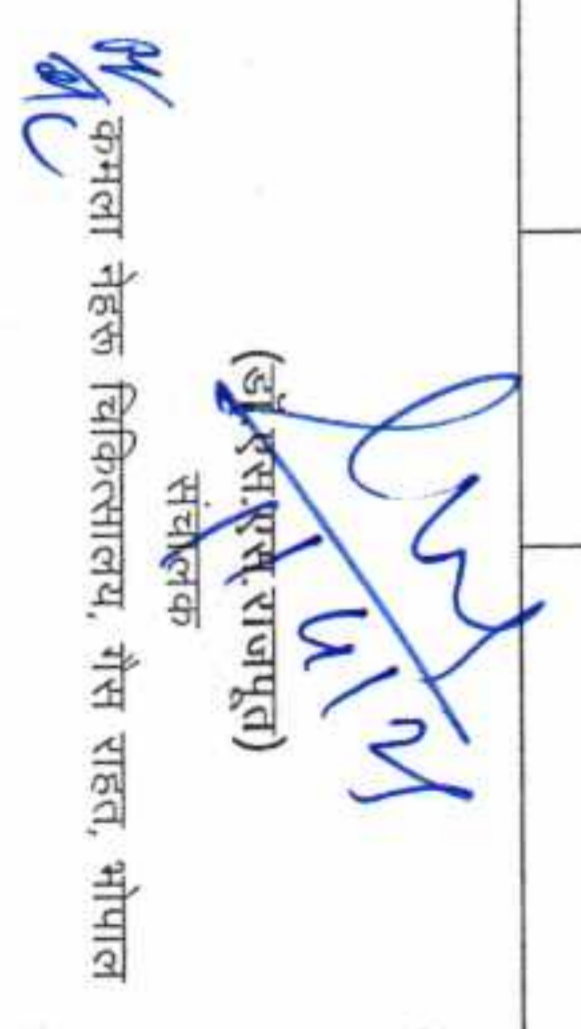 (डॉ. एस.एस. राजपूत)
संचालक
कमला नेहरू चिकित्सालय, गैस राहत, भोपाल